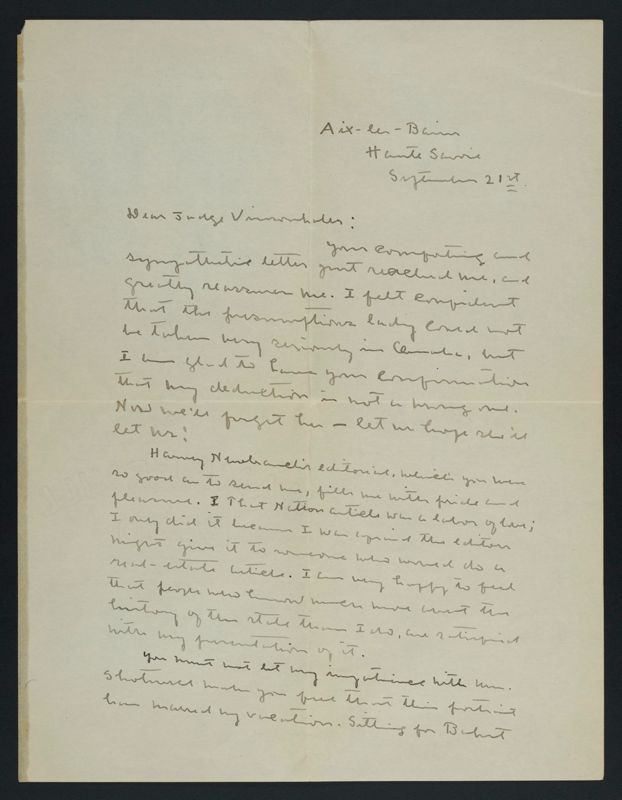 Aix-les-Bains
Haute Savoie
September 21st.
Dear Judge Vinsonhaler:
your comforting and
sympathetic letter just reached me, and
greatly reassures me. I felt confident
that the presumptious lady could not
be taken very seriously in Omaha, but
I am glad to have your confirmation
that my deduction is not a wrong one.
Now we'll forget her — let us hope she'll
let us!
Harvey Newbranch's editorial, which you were
so good as to send me, fills me with pride and
pleasure. I That Nation article was a labor of love;
I only did it because I was afraid the editors
might give it to someone who would do a
real-estate article. I am very happy to feel
that people who know much more about the
history of the state than I do, are satisfied
with my presentation of it.
you must not let my impatience with Mrs.
Shotwell make you feel that this portrait
has marred my vacation. Sitting for Bakst